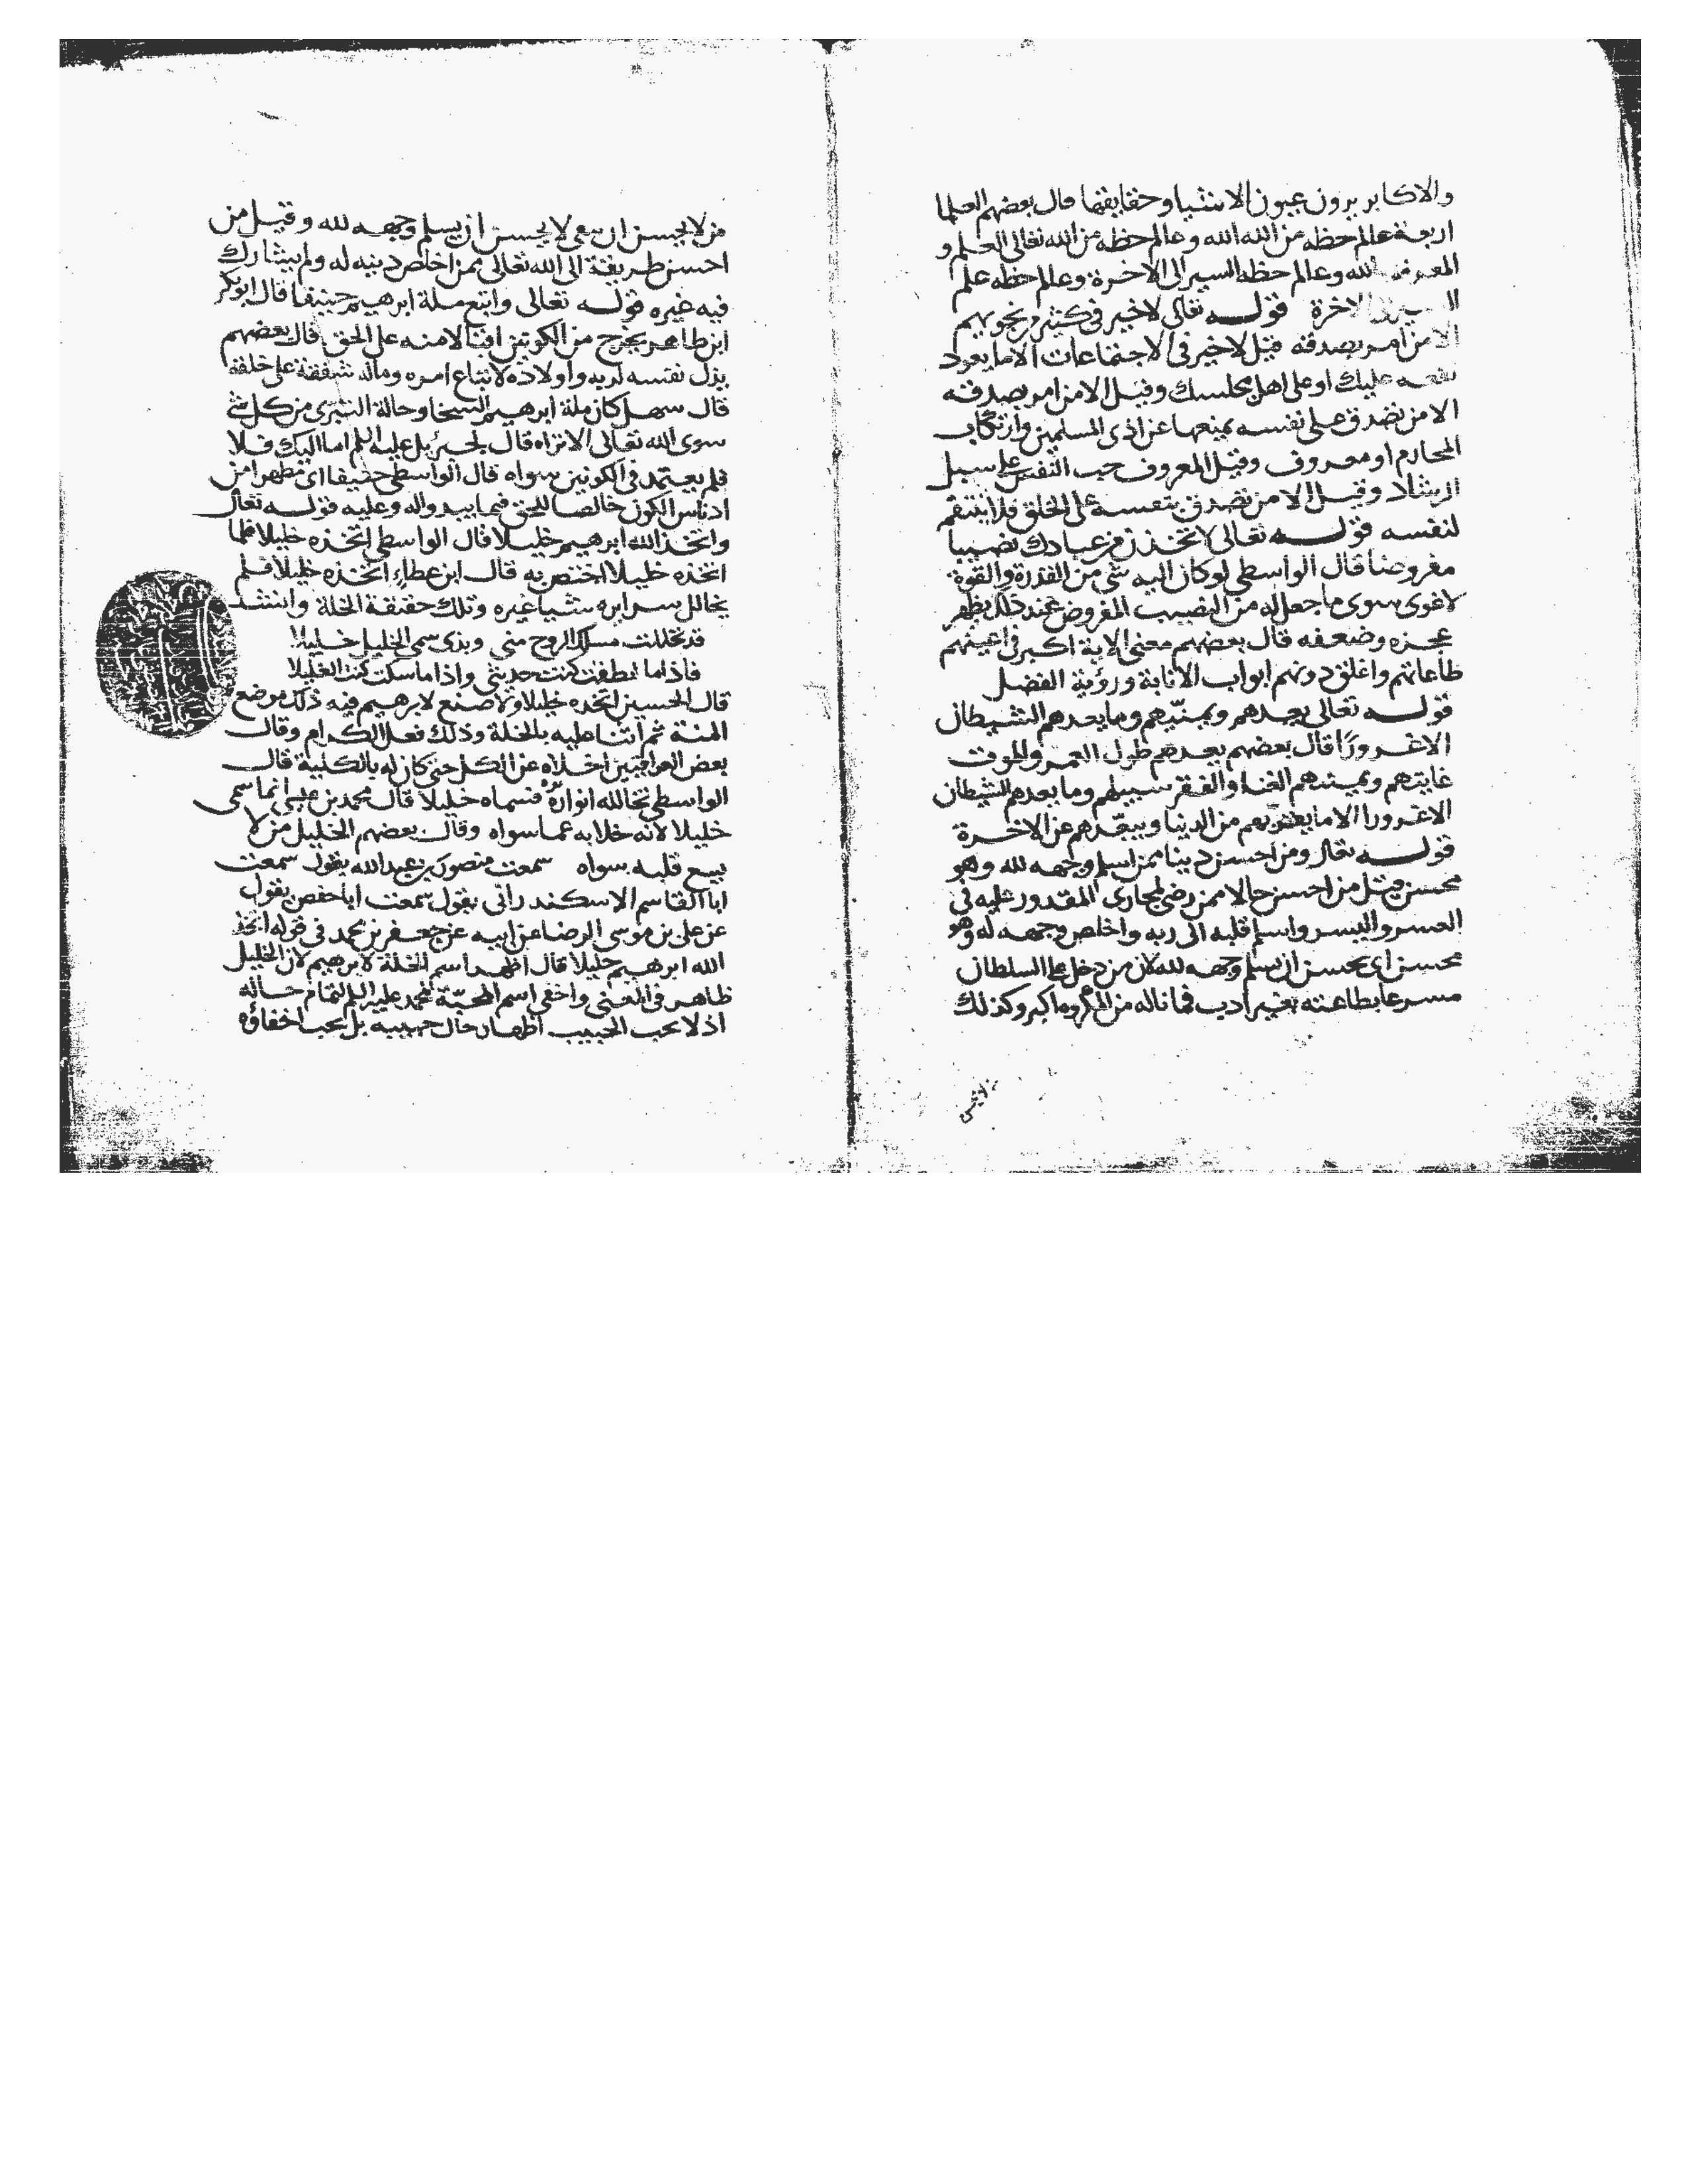 والاكابر يرون عيون الاشيا وحقايقها قال بعضهم العلما
اربعة عالم حظه من الله الله وعالم حظه من الله تعالى العلم و
المعرفة بالله وعالم حظه السير الى الاخرة وعالم حظه علم
الاخرة قوله تعالى لاخير في كثير من نجويهم
الا من امر بصدقه قيل لاخير في الاجتماعات الا ما يعود
نفعه عليك او على اهل مجلسك وقيل الا من امر بصدقه
الا من تصدق على نفسه بمنعها عن اذى المسلمين وارتكاب
المحارم او معروف وقيل المعروف حب النفس على سبيل
الرشاد وقيل الا من تصدق بنفسه على الخلق فلا ينتقم
لنفسه قوله تعالى لاتخذن من عبادك نصيبا
مفروضا قال الواسطى لو كان اليه شي من القدرة والقوة
لاغوى سوى ما جعل له من النصيب المفروض عند ذلك يظهر
عجزه وضعفه قال بعضهم معنى الاية اكبر في اعينهم
طاعاتهم واغلق دونهم ابواب الانابة ورؤية الفضل
قوله تعالى يعدهم ويمنيهم وما يعدهم الشيطان
الا غرورا قال بعضهم يعدهم طول العمر والموت
غايتهم ويمنيهم الغنا والفقر سبيلهم وما يعدهم الشيطان
الا غرورا الا ما يقربهم من الدنيا ويبعدهم عن الاخرة
قوله تعالى ومن احسن دينا ممن اسلم وجهه لله وهو
محسن قيل من احسن حالا ممن رضى لمجارى المقدور عليه في
العسر واليسر واسلم قلبه الى ربه واخلص وجهه له وهو
محسن اى يحسن ان يسلم وجهه لله لان من دخل على السلطان
مسرعا بطاعته بغير ادب فما ناله من المكروه اكبر وكذلك
من لا يحسن
من لا يحسن ان يسعى لا يحسن ان يسلم وجهه لله وقيل من
احسن طريقة الى الله تعالى ممن اخلص دينه له ولم يشارك
فيه غيره قوله تعالى واتبع ملة ابرهيم حنيفا قال ابو بكر
ابن طاهر يخرج من الكونين اقبالا منه على الحق قال بعضهم
بذل نفسه لربه واولاده لاتباع امره وماله شفقة على خلقه
قال سهل كان ملة ابرهيم السخا وحالة التبرى من كل شى
سوى الله تعالى الا تراه قال لجبرئيل عليه السلم اما اليك فلا
فلم يعتمد في الكونين سواه قال الواسطى حنيفا اى مطهرا من
ادناس الكون خالصا للحق فيما يبدو له وعليه قوله تعالى
واتخذ الله ابرهيم خليلا قال الواسطى اتخذه خليلا فلما
اتخذه خليلا اختص به قال ابن عطاء اتخذه خليلا فلم
يخالل سرايره شيا غيره وتلك حقيقة الخلة وانشد
قد تخللت مسلك الروح منى وبذى سمى الخليل خليلا
فاذا ما نطقت كنت حديثى واذا ما سكت كنت الغليلا
قال الحسين اتخذه خليلا ولا صنع لابرهيم فيه ذلك موضع
المنة ثم اثنا عليه بالخلة وذلك فعل الكرام وقال
بعض العراقيين اخلاه عن الكل حتى كان له بالكلية قال
الواسطى تخالله انواره فسماه خليلا قال محمد بن عيسى انما سمى
خليلا لانه خلا به عما سواه وقال بعضهم الخليل من لا
يسع قلبه سواه سمعت منصور بن عبد الله يقول سمعت
ابا القاسم الاسكندرانى يقول سمعت ابا حفص يقول
عن على بن موسى الرضا عن ابيه عن جعفر بن محمد في قوله اتخذ
الله ابرهيم خليلا قال اظهر اسم الخلة لابرهيم لان الخليل
ظاهر في المعنى واخفى اسم المحبة لمحمد عليه السلم لتمام حاله
اذ لا يحب الحبيب اظهار حال حبيبه بل يحب اخفاؤه